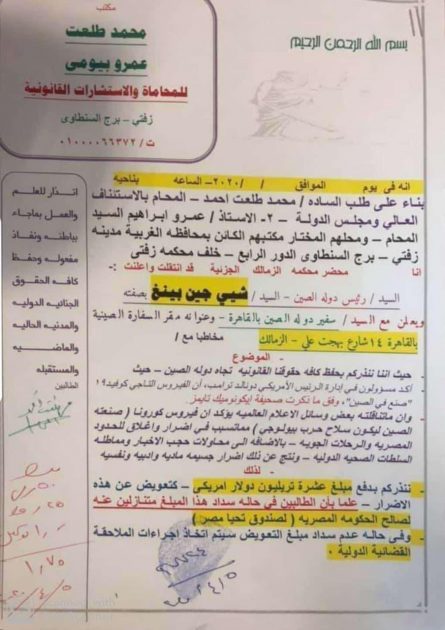 مكتب
محمد طلعت
عمرو بيومى
للمحاماة والاستشارات القانونية
زفتي – برج السنطاوى
ت / ٠١٠٠٠٠٦٦٣٧٢
بسم الله الرحمن الرحيم
انه فى يوم الموافق / /٢٠٢٠- الساعه بناحيه
بناء على طلب الساده / محمد طلعت احمد – المحام بالاستئناف
العالي ومجلس الدولة – ٢- الاستاذ / عمرو ابراهيم السيد
المحام – ومحلهم المختار مكتبهم الكائن بمحافظه الغربية مدينه
زفتي – برج السنطاوى الدور الرابع – خلف محكمه زفتى
انا محضر محكمه الزمالك الجزئية قد انتقلت واعلنت :-
السيد / رئيس دوله الصين – السيد / شيي جين بينغ بصفته
ويعلن مع السيد / سفير دوله الصين بالقاهرة – وعنوانه مقر السفارة الصينية
بالقاهرة ١٤ شارع بهجت علي – الزمالك مخاطبا مع /
- الموضوع
- حيث اننا نتذركم بحفظ كافه حقوقنا القانونيه تجاه دوله الصين – حيث
- أكد مسؤولون في إدارة الرئيس الأمريكي دونالد ترامب، أن الفيروس التاجي كوفيد١٩
"صنع في الصين"، وفق ما ذكرت صحيفة ايكونوميك تايمز
- وان ماتناقلته بعض وسائل الاعلام العالميه يؤكد ان فيروس كورونا (صنعته
الصين ليكون سلاح حرب بيولوجي ) مماتسبب في اضرار واغلاق للحدود
المصريه والرحلات الجويه – بالاضافه الى محاولات حجب الاخبار ومماطله
السلطات الصحيه الدوليه – ونتج عن ذلك اضرار جسيمه ماديه وادبيه ونفسيه
- لذلك
- نتذركم بدفع مبلغ عشرة تريليون دولار امريكي – كتعويض عن هذه
الاضرار – علما بأن الطالبين في حاله سداد هذا المبلغ متنازلين عنه
لصالح الحكومه المصريه ( لصندوق تحيا مصر )
- وفى حاله عدم سداد مبلغ التعويض سيتم اتخاذ اجراءات الملاحقة
القضائية الدولية .
انذار للعلم
والعمل بماجاء
بباطنه ونفاذ
مفعوله وحفظ
كافه الحقوق
الجنائيه الدوليه
والمدنيه الحاليه
والماضيه
والمستقبله
الطالبين